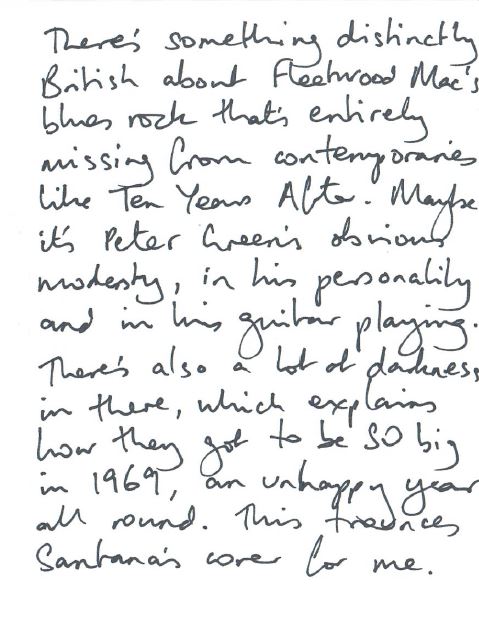 There's something distinctly
British about Fleetwood Mac's
blues rock that's entirely
missing from contemporaries
like Ten Years After. Maybe
it's Peter Green's obvious
modesty, in his personality
and in his guitar playing.
There's also a lot of darkness
in there, which explains
how they got to be SO big
in 1969, an unhappy year
all round. This trounces
Santana's cover for me.